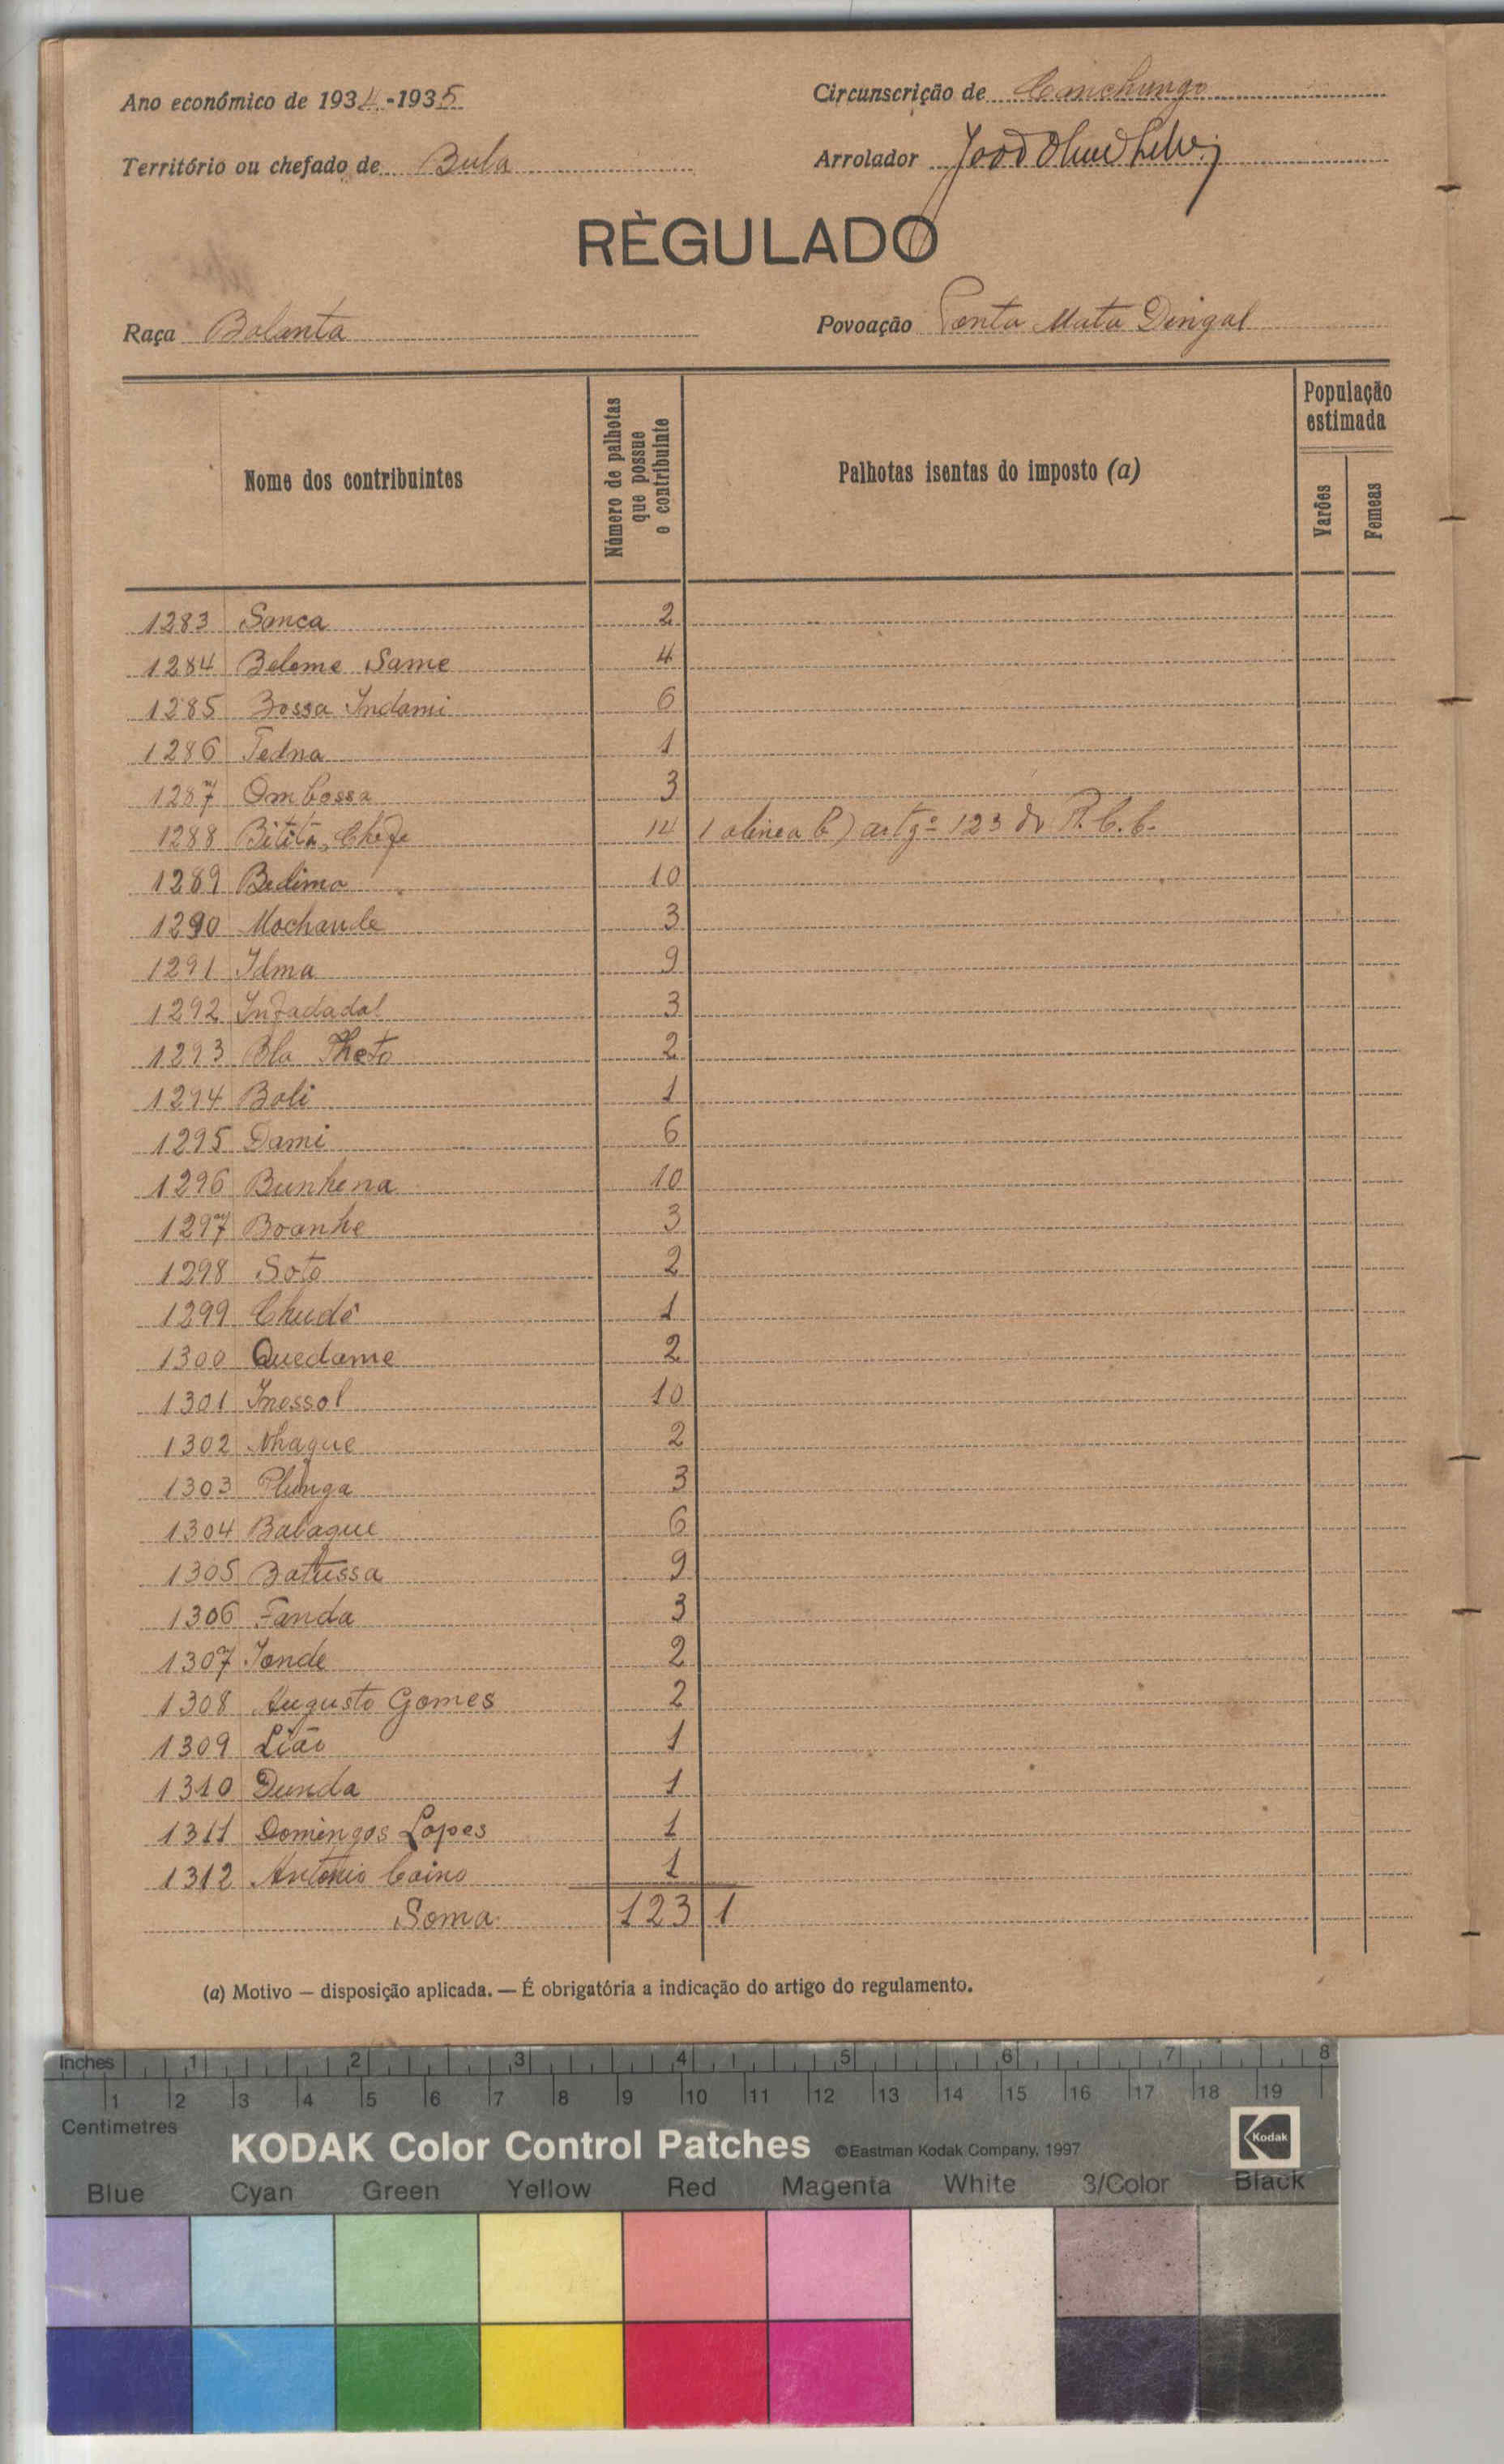 Ano económico de 1934-1935
Circunscrição de Canchungo
Território ou chefado de Bula
Arrolador João
RÈGULADO
Raça Balanta
Povoação Ponta Mata Dingal
Nome dos contribuintes
Número de palhotas que possue o contribuinte
Palhotas isentas do imposto (a)
População estimada
Varões
Femeas
1283 Sanca 2
1284 Beleme Same 4
1285 Bossa Indami 6
1286 Tedna 1
1287 Om bossa 3
1288 Bitita, Chefe 14 1 alinea b) artgº 123 do R.C.C.
1289 Bedima 10
1290 Mochaule 3
1291 Idma 9
1292 Infadadal 3
1293 Bla Theto 2
1294 Bali 1
1295 Dami 6
1296 Bunhena 10
1297 Boanhe 3
1298 Soto 2
1299 Chudó 1
1300 Quedame 2
1301 Inessol 10
1302 Nhaque 2
1303 Plunga 3
1304 Balaque 6
1305 Batussa 9
1306 Fanda 3
1307 Jonde 2
1308 Augusto Gomes 2
1309 Lião 1
1310 Dunda 1
1311 Domingos Lopes 1
1312 António Caino 1
Soma 123 1
(a) Motivo — disposição aplicada. — É obrigatória a indicação do artigo do regulamento.
Inches 1 2 3 4 5 6 7 8
1 2 3 4 5 6 7 8 9 10 11 12 13 14 15 16 17 18 19
Centimetres
KODAK Color Control Patches ©Eastman Kodak Company, 1997 Kodak
Blue Cyan Green Yellow Red Magenta White 3/Color Black